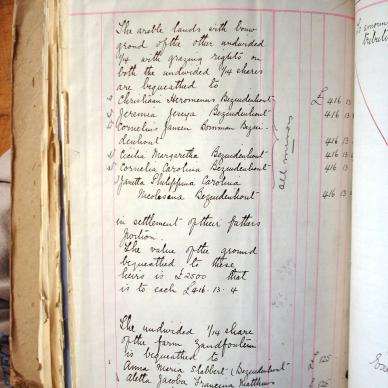 The arable lands with bouw
grond of the other undivided
1/4 with grazing rights on
both the undivided 1/4 shares
are bequeathed to
Christiaan Hieronemus Bezuidenhout £ 416 13
Jeremia Jesaya Bezuidenhout 416 13
Cornelius Jansen Bomman Bezui-
denhout 416 13
Cecilia Margaretha Bezuidenhout 416 13
Cornelia Carolina Bezuidenhout 416 13
Janetta Philippina Carolina
Nicolasana Bezuidenhout 416 13
all minors
in settlement of their fathers
portion.
The value of the ground
bequeathed to these
heirs is £2500 that
is to each £416.13.4
The undivided 1/4 share
of the farm Zandfontein
is bequeathed to
Anna Maria Slabbert (Bezuidenhout £ 125
Aletta Jacoba Francina Matthee 125